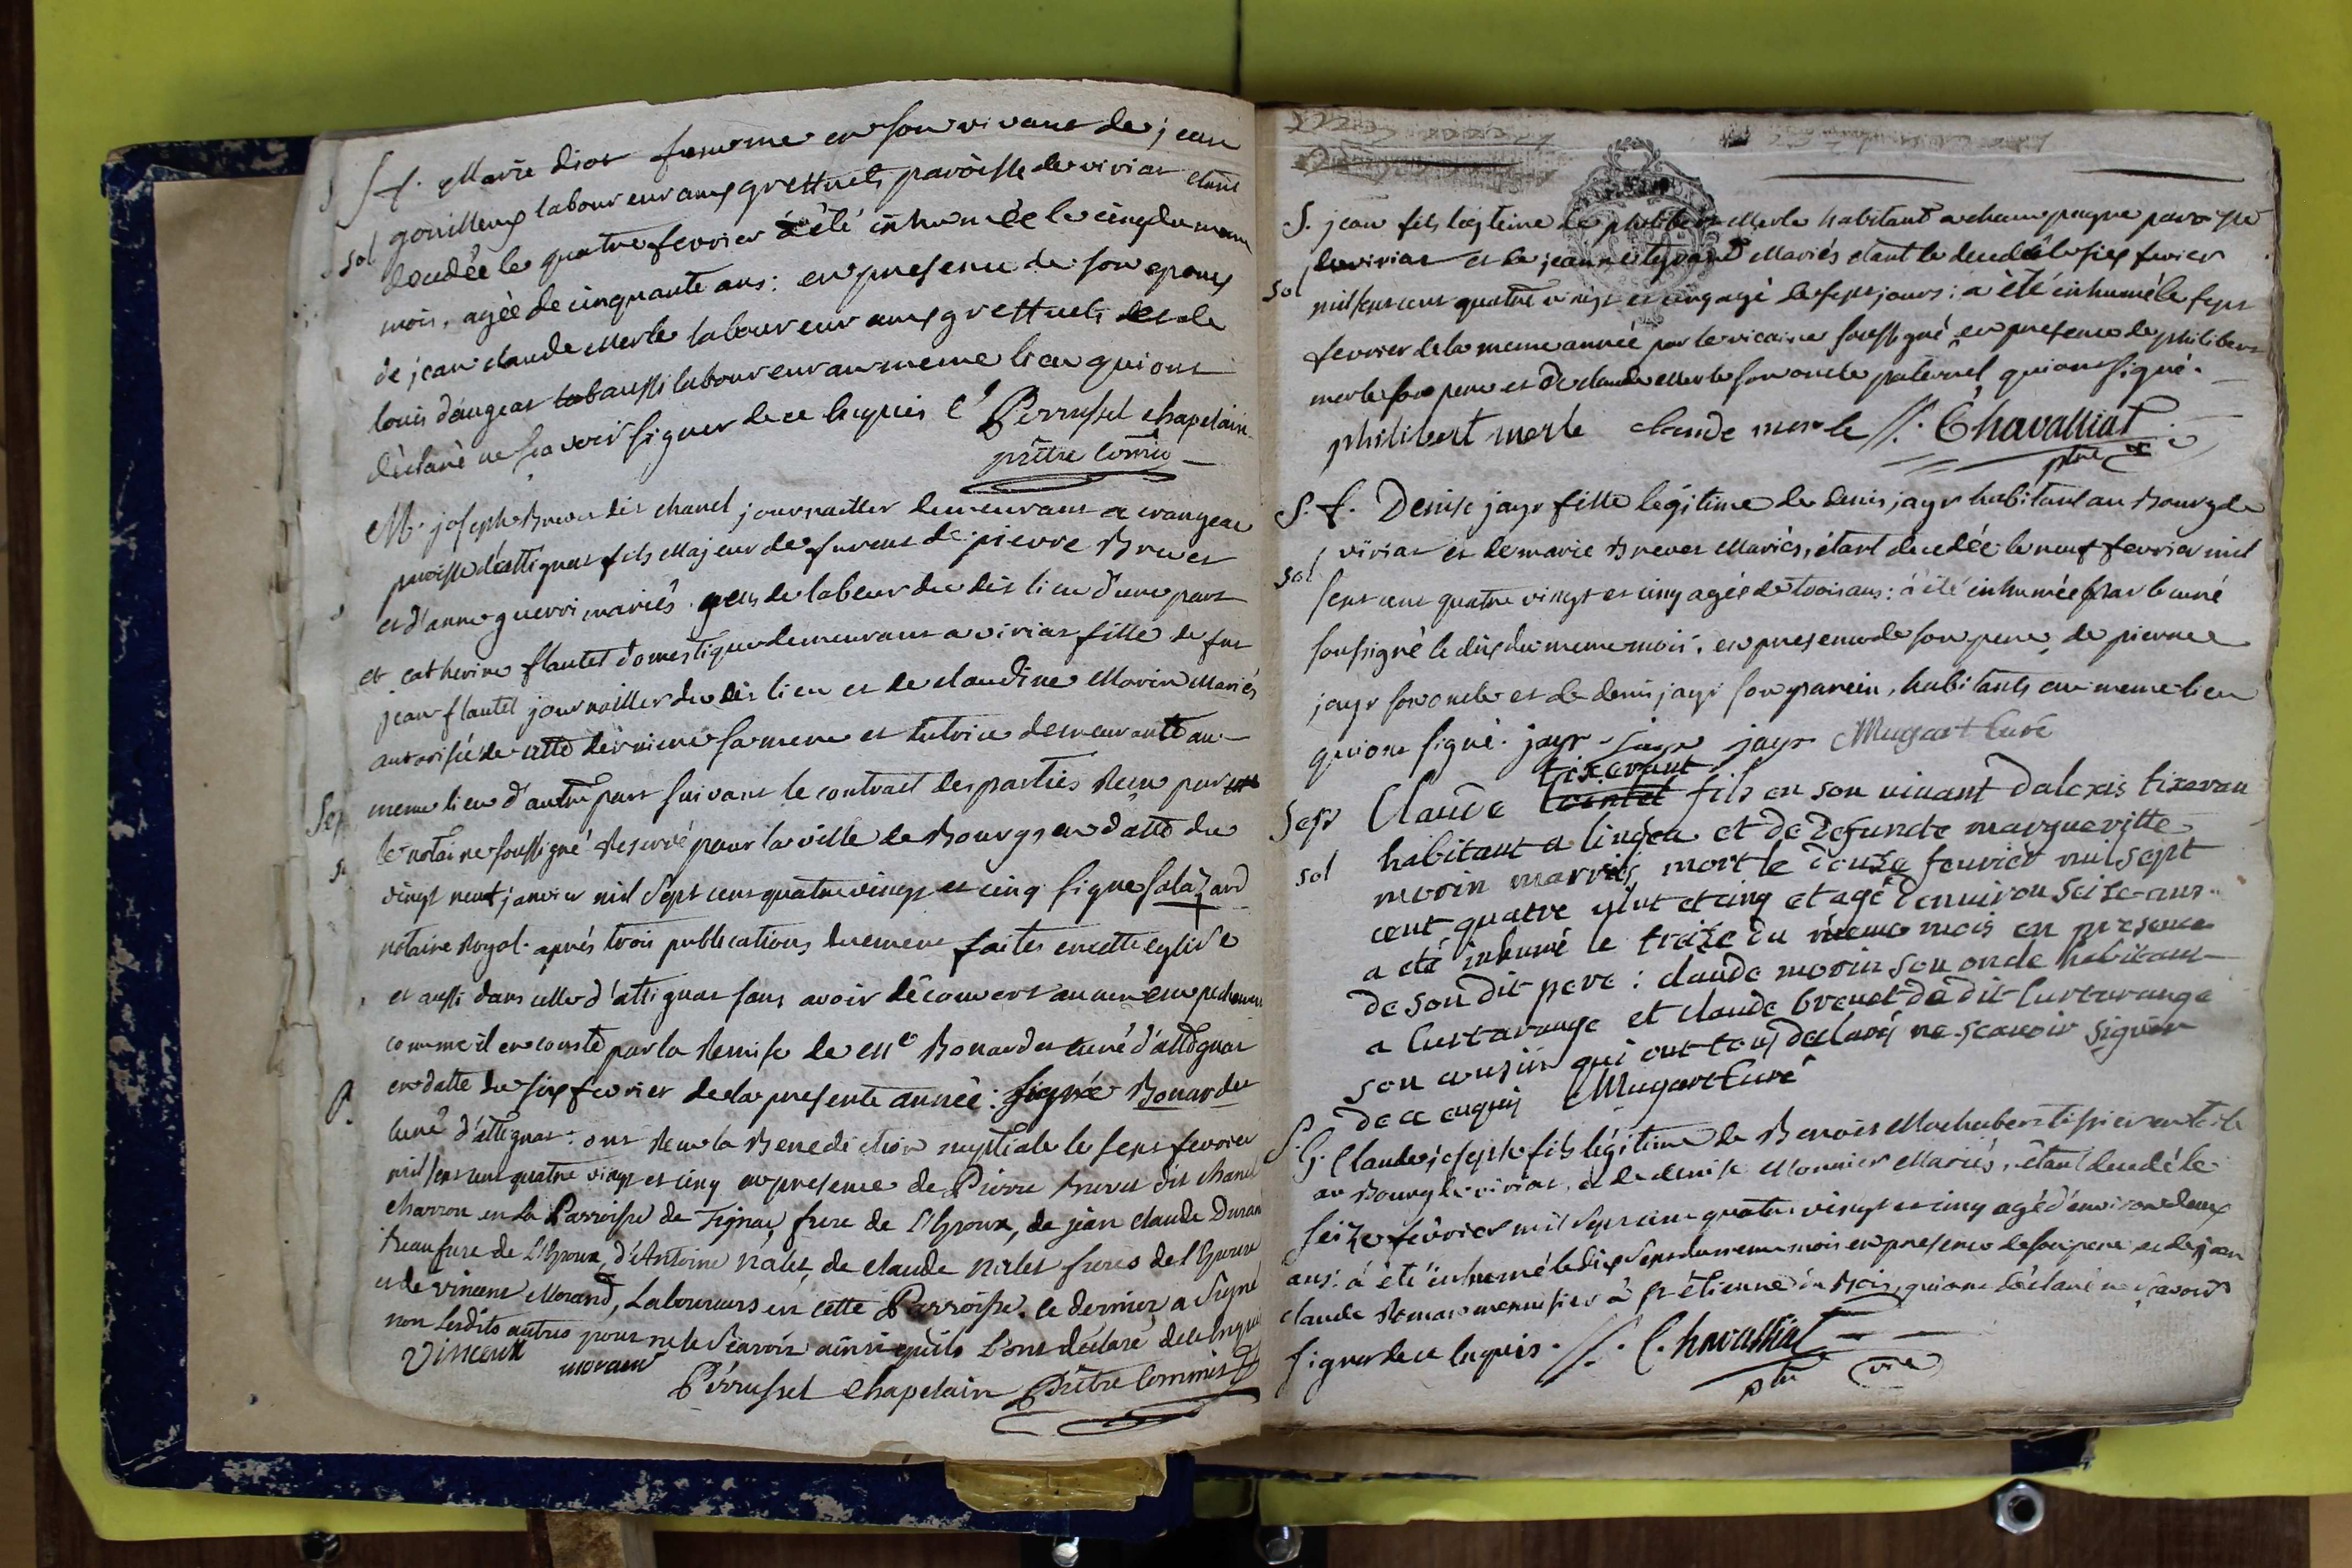 S f. Marie dior femme en son vivant de jean
gouilleux laboureur aux grettuets paroisse de viriat etant
sol
decedée le quatre fevrier à été inhumée le cinq du meme
mois, agée de cinquante ans: en presence de son epoux
de jean claude Merle laboureur aux grettuets et de
louis daugeat aussi laboureur au meme lieu qui ont
déclaré ne scavoir signer de ce lequis Perrussel chapelain
prêtre comis
M. joseph Brevet dit chanel journallier demeurant a crangeac
paroisse d'attignat fils Majeur de furent de pierre Brevet
et d'anne guerri mariés gens de labeur du dit lieu d'une part
et catherine flautet domestique demeurant a viriat fille de fut
jean flautet journallier du dit lieu et de claudine Morin Mariés
autorisée de cette derniere sa mere et tutrice demeurante au
meme lieu d'autre part suivant le contract des parties Recu par
le notaire soussigné Reservé pour la ville de Bourg en datte du
vingt neuf janvier mil sept cent quatre vingt et cinq signé salazard
notaire Royal. aprés trois publications duement faites en cette eglise
et aussi dans celle d'attignat sans avoir découvert aucun empechement
comme il en conste par la Remise de Mre Bonardet curé d'attignat
en datte du six fevrier de la presente année: signée Bonardet
curé d'attignat: ont Recu la Benediction nuptiale le sept fevrier
mil sept cent quatre vingt et cinq en presence de Pierre Brevet dit chanel
charron en La Parroisse de Tignat, frere de L'Epoux, de jean claude Durand
beau frere de L'Epoux, d'Antoine nalet, de claude nalet freres de l'Epouse
et de vincent Morand, Laboureurs en cette Parroisse. le dernier a Signé
non Lesdits autres pour ne le Sçavoir ainsi quils L'ont déclaré de ce Enquis
Vincent morand
Pérrussel Chapelain Prêtre Commis
S. jean fils legitime de philibert Merle habitant a champagne paroisse
de viriat et de jeanne Mariés etant decedé le six fevrier
sol
mil sept cent quatre vingt et cinq agé de sept jours: a été inhumé le sept
fevrier de la meme année par le vicaire soussigné en presence de philibert
merle son pere et de claude Merle son oncle paternel qui ont signé.
philibert merle claude merle Chavalliat
ptre vic
S. f. Denise jayr fille légitime de denis jayr habitant au Bourg de
viriat et de marie Brevet Mariés, étant decedée le neuf fevrier mil
sol
sept cent quatre vingt et cinq agée de trois ans: à été inhumée par le curé
soussigné le dix du meme mois: en presence de son pere, de pierre
jayr son oncle et de denis jayr son parein, habitants au meme lieu
qui ont signé. jayr jayr jayr Mugart Curé
tixerant
Sept Claude fils en son vivant dalexis tixeran
habitant a lingea et de defuncte margueritte
sol
morin marriés mort le douze feuvier mil sept
cent quatre vint et cinq et agé denviron seize ans
a été inhumé le traize du même mois en presence
de son dit pere: claude morin son oncle habitant
a Curtarange et claude brevet de dit Curtarange
son cousin qui ont tous declaré ne scavoir signer
de ce enquis Mugart Curé
S. G. Claude joseph fils légitime de Benoit Mochubert tissier en toile
au Bourg de viriat, & de denise Monnier Mariés, étant decedé le
seize fevrier mil sept cent quatre vingt et cinq agé d'environ deux
ans: à été inhumé le dix sept du meme mois en presence de son pere et de jean
claude Renau menuisier à st étienne du Bois, qui ont déclaré ne scavoir
signer de ce lequis. Chavalliat
ptre vic